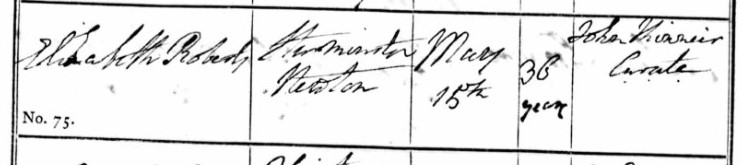 Elizabeth Roberts
Sturminster
Newton
May
15th
36
years
John
Curate
No. 75.